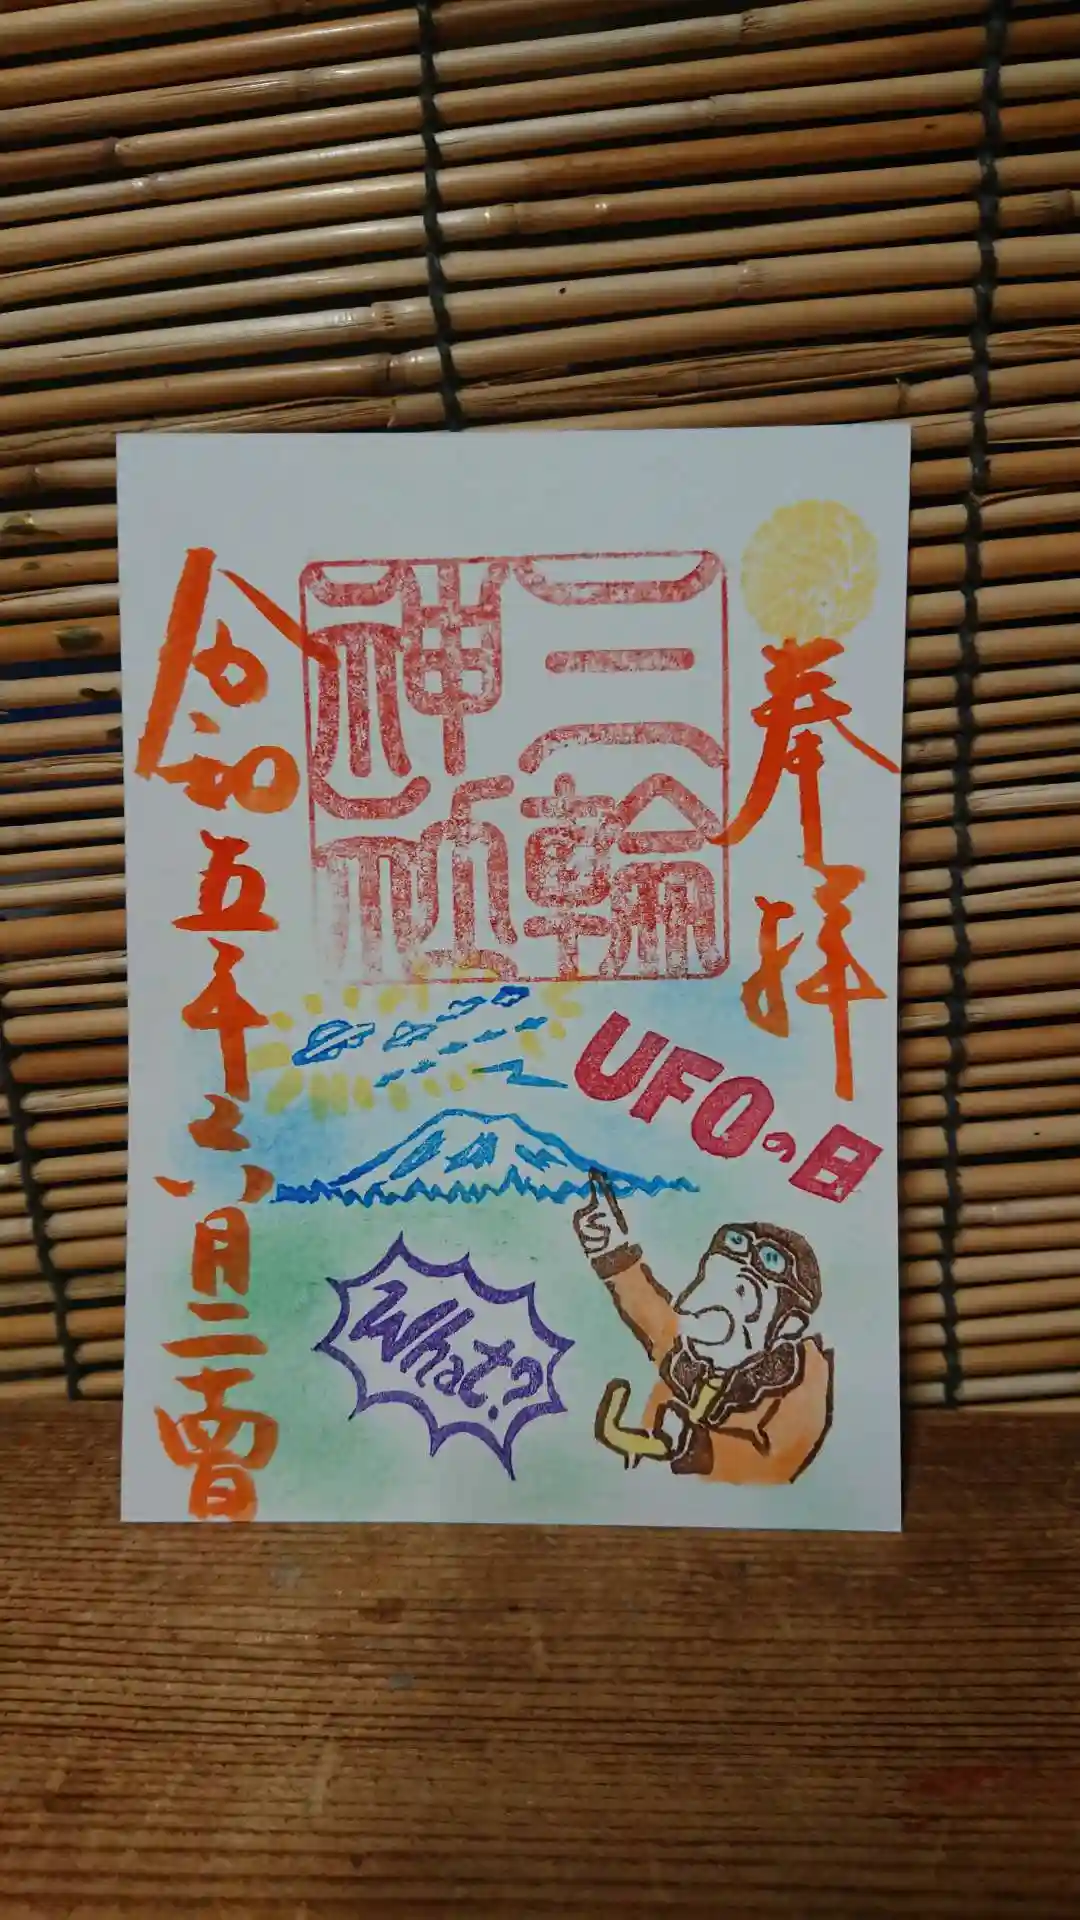 奉拝
三輪
神社
令和五年六月二十四日
UFOの日
What?